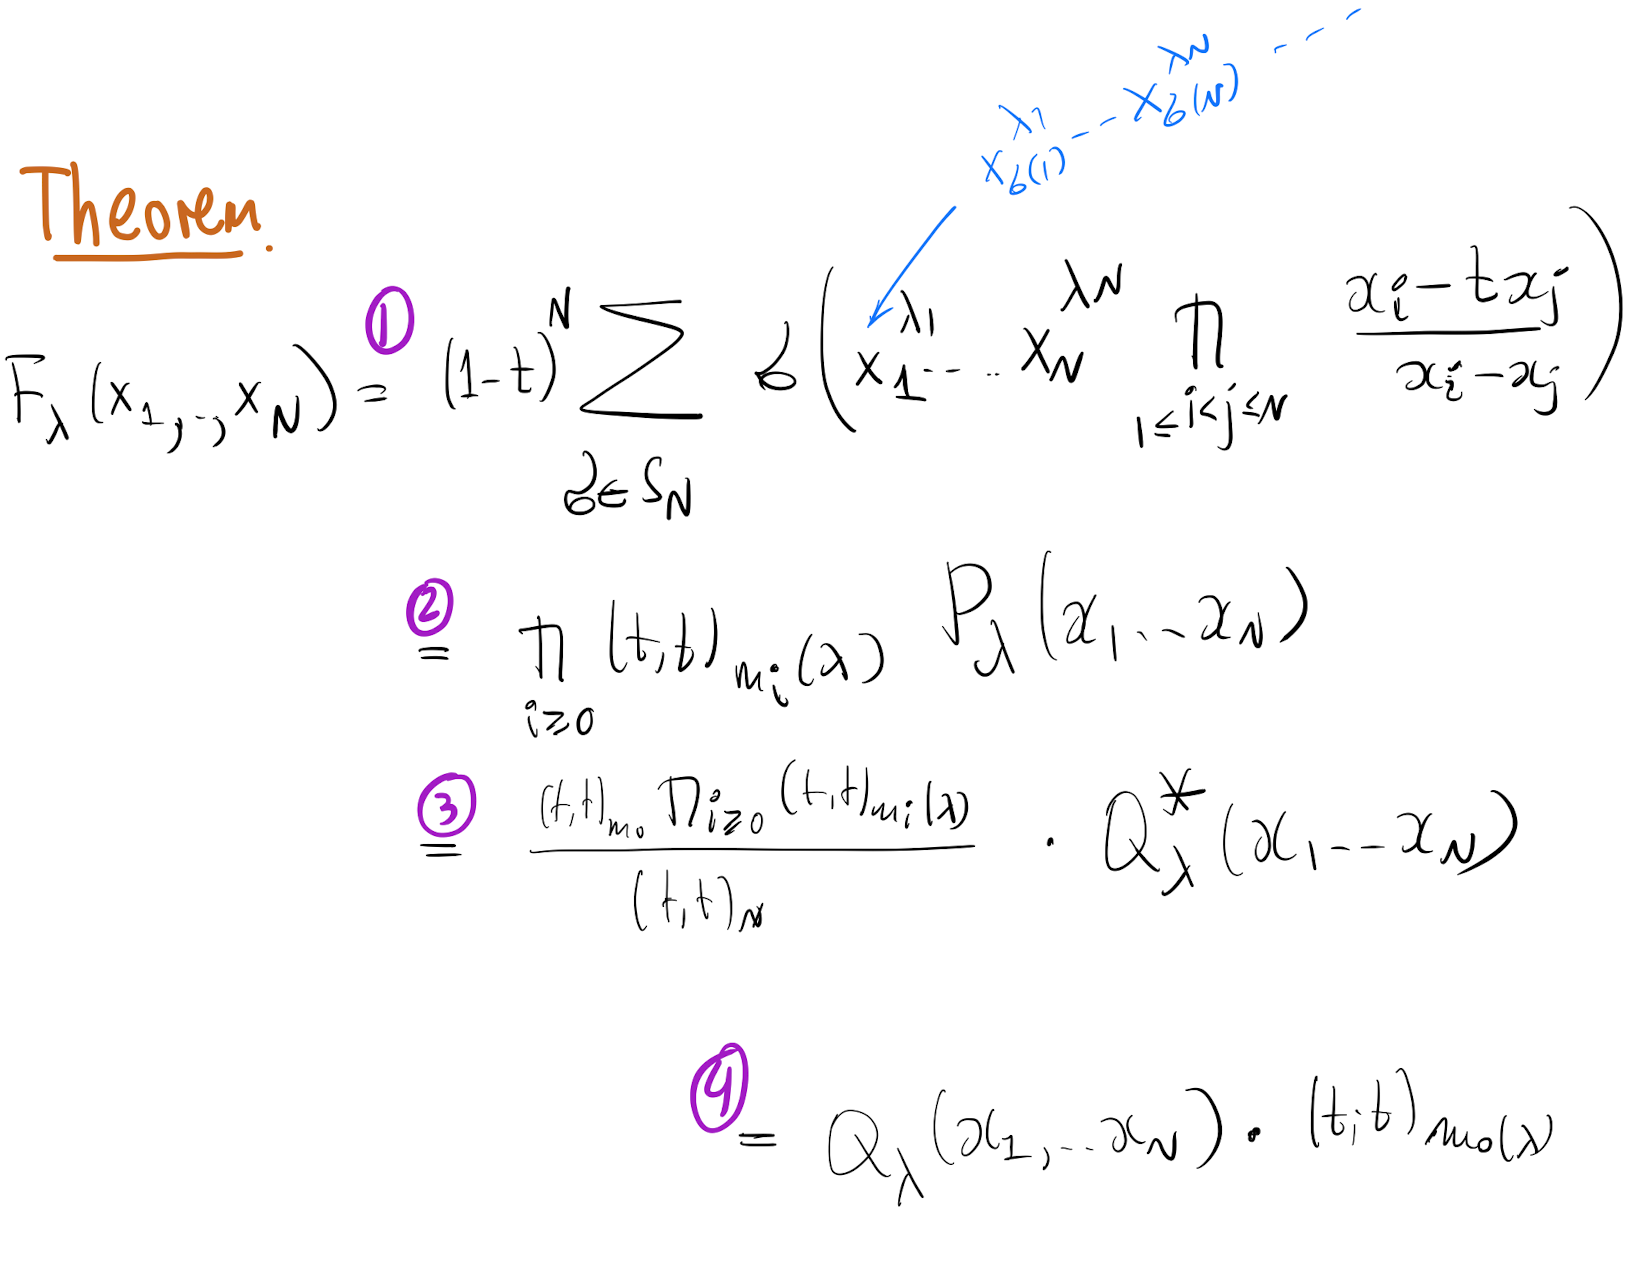 x_{σ(1)}^{λ1} -- x_{σ(N)}^{λN} ---
Theorem.
① F_λ(x_1,..,x_N) = (1-t)^N ∑_{σ∈S_N} σ( x_1^{λ_1} ... x_N^{λ_N} ∏_{1≤i<j≤N} (x_i - t x_j)/(x_i - x_j) )
② = ∏_{i≥0} (t,t)_{m_i(λ)} P_λ(x_1...x_N)
③ = ((t,t)_{m_0} ∏_{i≥0} (t,t)_{m_i(λ)})/((t,t)_N) · Q^*_λ(x_1--x_N)
④ = Q_λ(x_1,..x_N) · (t;t)_{m_0(λ)}